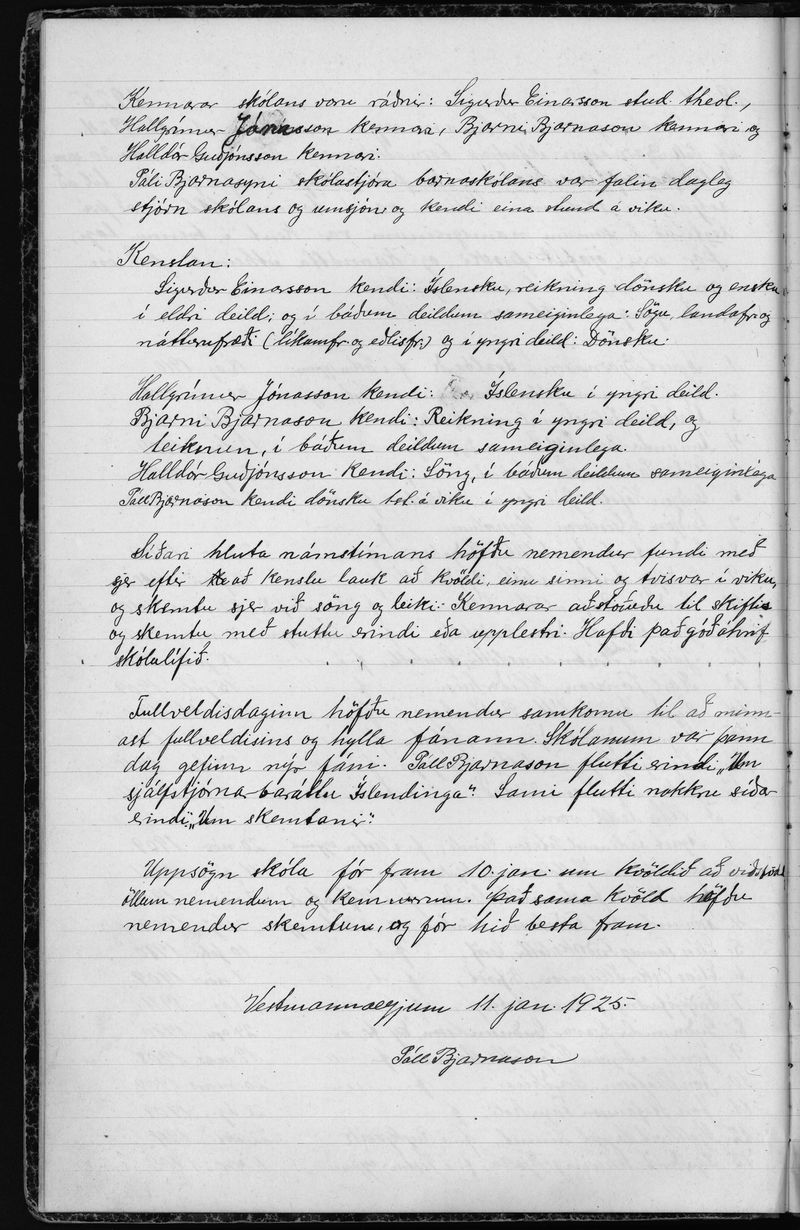 Kennarar skólans voru ráðnir: Sigurður Einarsson stud. theol.,
Hallgrímur Jónasson kennari, Bjarni Bjarnason kennari og
Halldór Guðjónsson kennari.
Páli Bjarnasyni skólastjóra barnaskólans var falin dagleg
stjórn skólans og umsjón og kendi eina stund á viku.
Kenslan:
Sigurður Einarsson kendi: Íslensku, reikning dönsku og ensku
í eldri deild; og í báðum deildum sameiginlega: Sögu, landafr. og
náttúrufræði (líkamfr. og eðlisfr.) og í yngri deild: Dönsku.
Hallgrímur Jónasson kendi: Íslensku í yngri deild.
Bjarni Bjarnason kendi: Reikning í yngri deild, og
teiknun, í báðum deildum sameiginlega.
Halldór Guðjónsson kendi: Söng, í báðum deildum sameiginlega
Páll Bjarnason kendi dönsku 1st. á viku í yngri deild.
Síðari hluta námstímans höfðu nemendur fundi með
sjer eftir að kenslu lauk að kvöldi, einu sinni og tvisvar í viku,
og skemtu sjer við söng og leiki. Kennarar aðstoðuðu til skiftis
og skemtu með stuttu erindi eða upplestri. Hafði það góð áhrif
skólalífið.
Fullveldisdaginn höfðu nemendur samkomu til að minn-
ast fullveldisins og hylla fánann. Skólanum var þann
dag gefinn nýr fáni. Páll Bjarnason flutti erindi „Um
sjálfstjórnarbaráttu Íslendinga". Sami flutti nokkru síðar
erindi „Um skemtanir".
Uppsögn skóla fór fram 10. jan. um kvöldið að viðstödd
öllum nemendum og kennurum. Það sama kvöld höfðu
nemendur skemtun, og fór hið besta fram.
Vestmannaeyjum 11. jan. 1925.
Páll Bjarnason